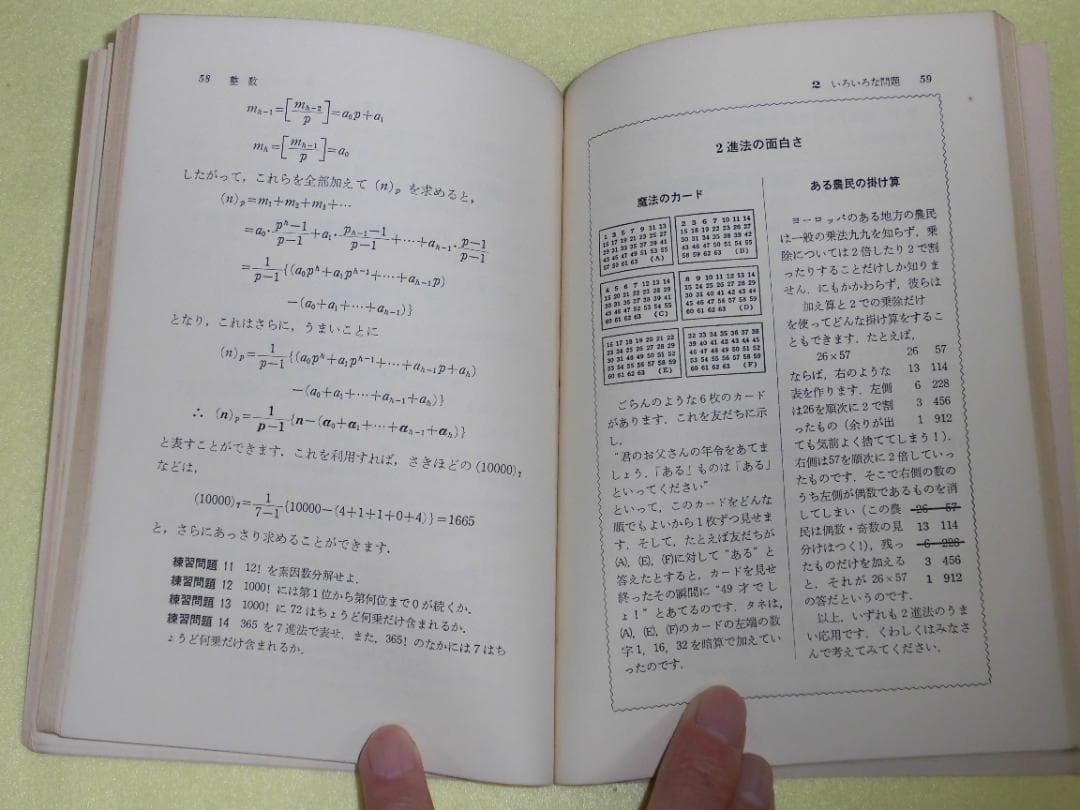 58 整数
m_{h-1}=[m_{h-2}/p]=a_0p+a_1
m_h=[m_{h-1}/p]=a_0
したがって，これらを全部加えて (n)_p を求めると，
(n)_p=m_1+m_2+m_3+…
=a_0・(p^h-1)/(p-1)+a_1・(p^{h-1}-1)/(p-1)+…+a_{h-1}・(p-1)/(p-1)
=1/(p-1){(a_0p^h+a_1p^{h-1}+…+a_{h-1}p)
-(a_0+a_1+…+a_{h-1})}
となり，これはさらに，うまいことに
(n)_p=1/(p-1){(a_0p^h+a_1p^{h-1}+…+a_{h-1}p+a_h)
-(a_0+a_1+…+a_{h-1}+a_h)}
∴ (n)_p=1/(p-1){n-(a_0+a_1+…+a_{h-1}+a_h)}
と表すことができます．これを利用すれば，さきほどの (10000)_7
などは，
(10000)_7=1/(7-1){10000-(4+1+1+0+4)}=1665
と，さらにあっさり求めることができます．
練習問題 11 12! を素因数分解せよ．
練習問題 12 1000! には第1位から第何位まで0が続くか．
練習問題 13 1000! に72はちょうど何乗だけ含まれるか．
練習問題 14 365を7進法で表せ．また，365! のなかには7はち
ょうど何乗だけ含まれるか．
2 いろいろな問題 59
2進法の面白さ
魔法のカード
1 3 5 7 9 11 13
15 17 19 21 23 25 27
29 31 33 35 37 39 41
43 45 47 49 51 53 55
57 59 61 63 (A)
2 3 6 7 10 11 14
15 18 19 22 23 26 27
30 31 34 35 38 39 42
43 46 47 50 51 54 55
58 59 62 63 (B)
4 5 6 7 12 13 14
15 20 21 22 23 28 29
30 31 36 37 38 39 44
45 46 47 52 53 54 55
60 61 62 63 (C)
8 9 10 11 12 13 14
15 24 25 26 27 28 29
30 31 40 41 42 43 44
45 46 47 56 57 58 59
60 61 62 63 (D)
16 17 18 19 20 21 22
23 24 25 26 27 28 29
30 31 48 49 50 51 52
53 54 55 56 57 58 59
60 61 62 63 (E)
32 33 34 35 36 37 38
39 40 41 42 43 44 45
46 47 48 49 50 51 52
53 54 55 56 57 58 59
60 61 62 63 (F)
ごらんのような6枚のカード
があります．これを友だちに示
し，
“君のお父さんの年令をあてま
しょう．「ある」ものは「ある」
といってください”
といって，このカードをどんな
順でもよいから1枚ずつ見せま
す．そして，たとえば友だちが
(A), (E), (F)に対して“ある”と
答えたとすると，カードを見せ
終ったその瞬間に“49才でし
ょ！”とあてるのです．タネは，
(A), (E), (F)のカードの左端の数
字1，16，32を暗算で加えてい
ったのです．
ある農民の掛け算
ヨーロッパのある地方の農民
は一般の乗法九九を知らず，乗
除については2倍したり2で割
ったりすることだけしか知りま
せん．にもかかわらず，彼らは
加え算と2での乗除だけ
を使ってどんな掛け算をするこ
ともできます．たとえば，
26×57
ならば，右のような
表を作ります．左側
は26を順次に2で割
ったもの（余りが出
ても気前よく捨ててしまう！）．
26 57
13 114
6 228
3 456
1 912
右側は57を順次に2倍していっ
たものです．そこで右側の数の
うち左側が偶数であるものを消
してしまい（この農
民は偶数・奇数の見
分けはつく！），残っ
たものだけを加える
と，それが 26×57
の答だというのです．
26 57
13 114
6 228
3 456
1 912
以上，いずれも2進法のうま
い応用です．くわしくはみなさ
んで考えてみてください．